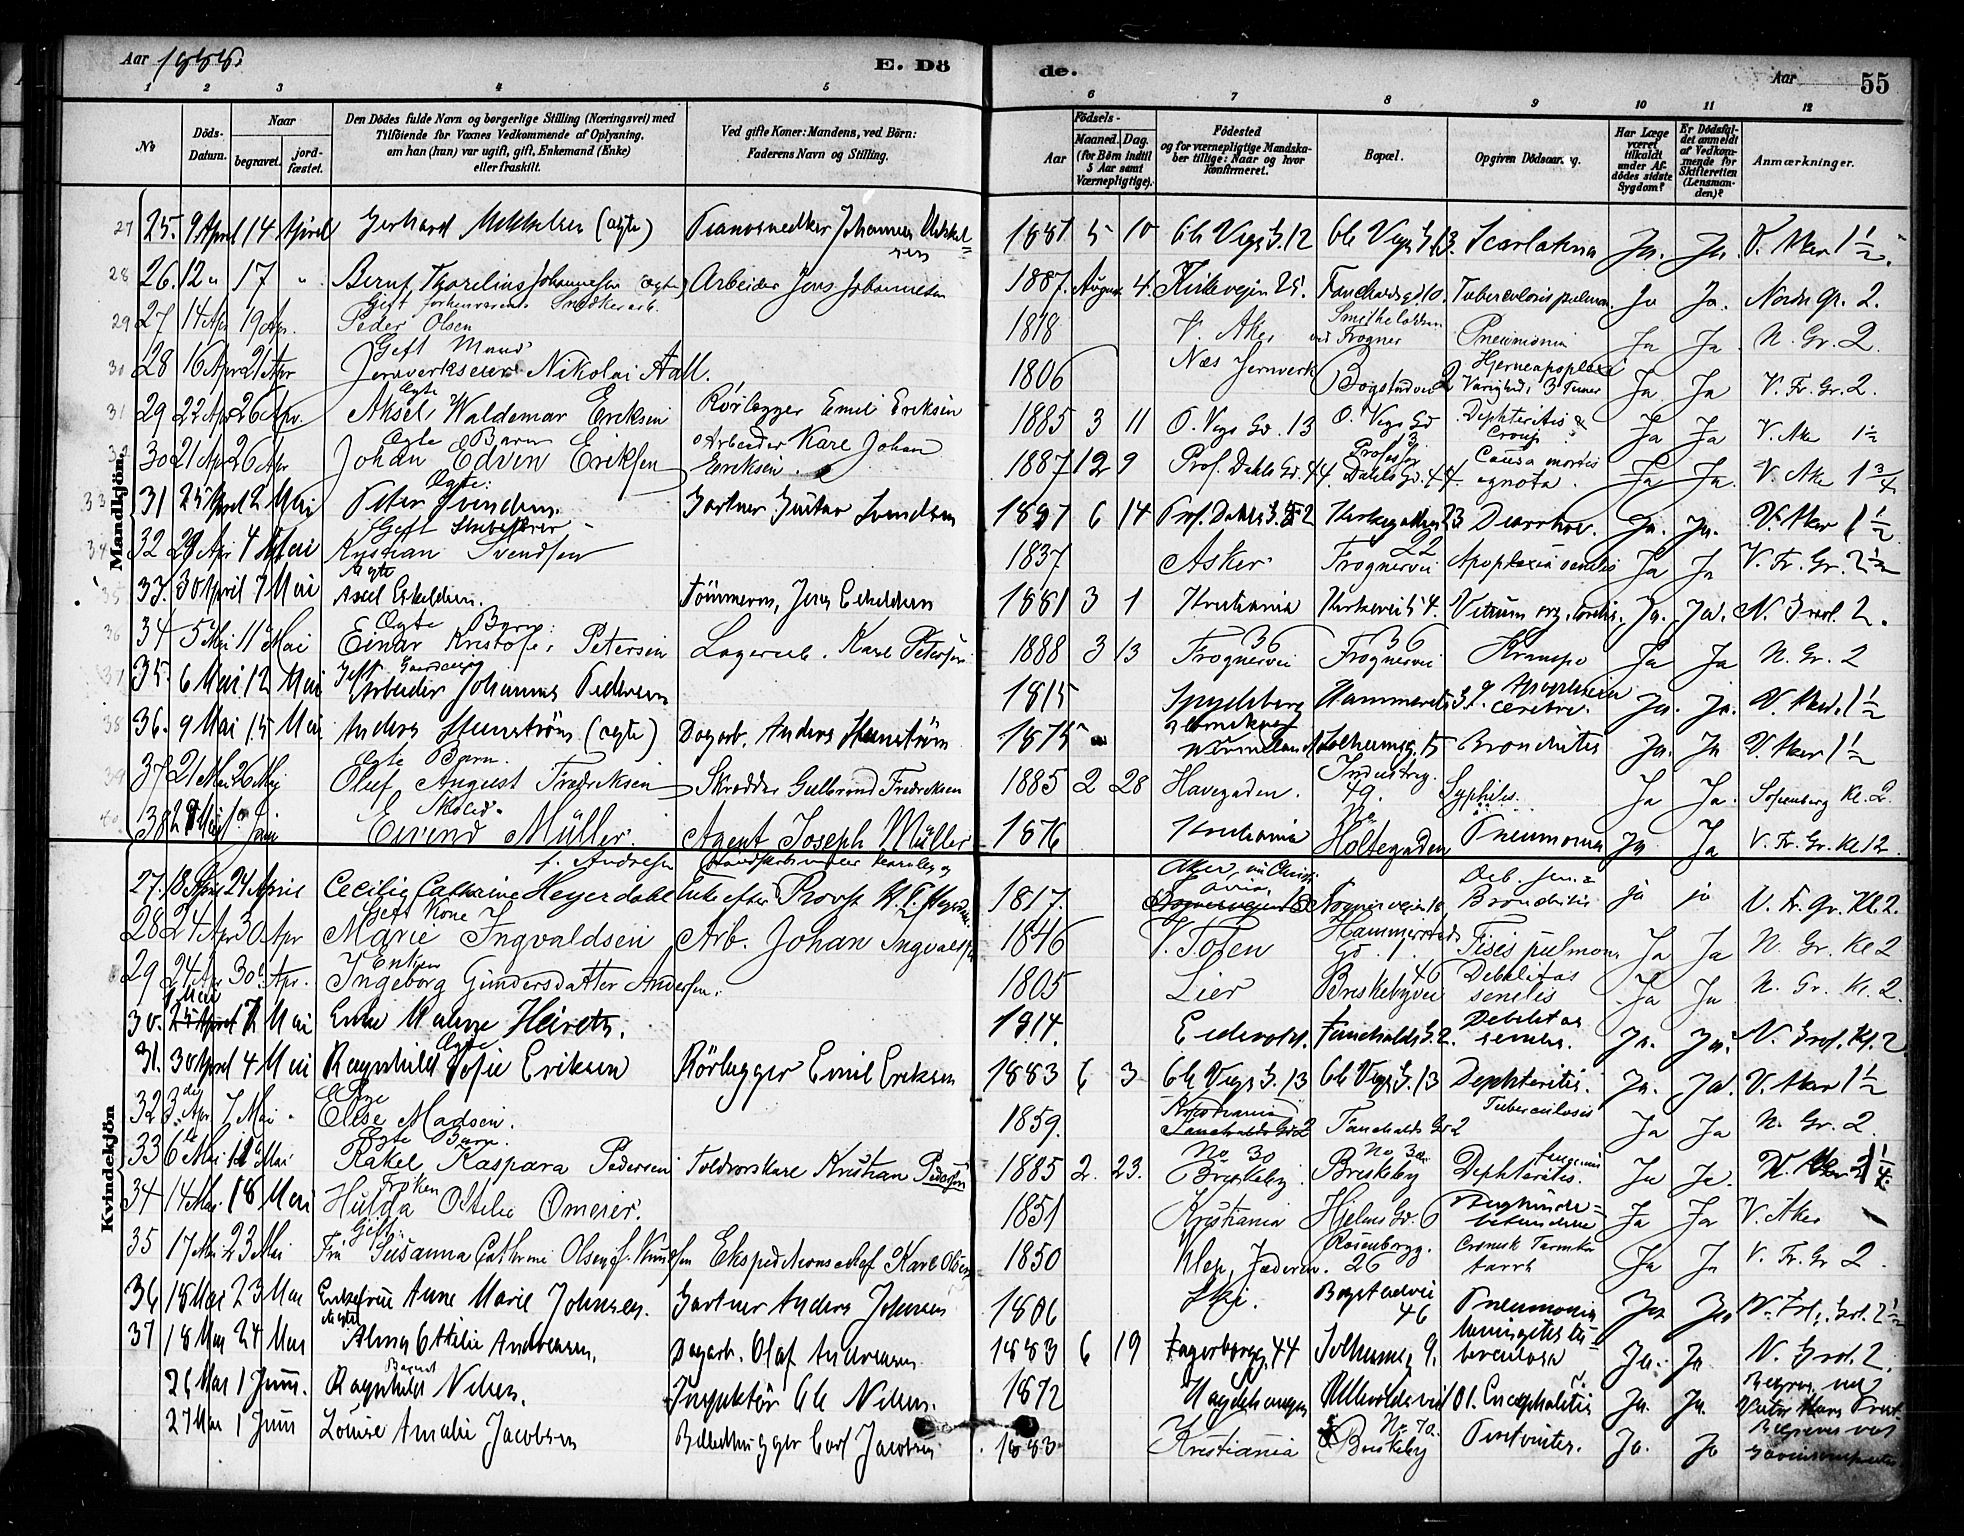 Aar 1888. E. Dö de. Aar 55
1 2 3 4 5 6 7 8 9 10 11 12
No
Döds-Datum.
Naar
begravet.
jord-fæstet.
Den Dödes fulde Navn og borgerlige Stilling (Næringsvei) med
Tilföiende for Voxnes Vedkommende af Oplysning,
om han (hun) var ugift, gift, Enkemand (Enke)
eller fraskilt.
Ved gifte Koner: Mandens, ved Börn:
Faderens Navn og Stilling.
Födsels-
Aar
Maaned. Dag.
(for Börn indtil
5 Aar samt
Værnepligtige).
Födested
og for værnepligtige Mandska-
ber tillige: Naar og hvor
konfirmeret.
Bopæl.
Opgiven Dödsaarsag.
Har Læge
været
tilkaldt
under Af-
dödes sidste
Sygdom?
Er Dödsfal-
det anmeldt
af Vedkom-
mende for
Skifteretten
(Lensman-
den)?
Anmærkninger.
Mandkjön.
27 25. 9 April 14 April Gerhard Mikkelsen (ægte) Pianosnedker Johannes Mikkelsen 1881 5 10 Ole Vigs G. 12 Ole Vigs G. 13. Scarlatina Ja. Ja. V. Aker 1 1/2.
28 26. 12 " 17 " Bernt Thorelius Johannessen (ægte) Arbeider Jens Johannesen 1887. August 4. Kirkevejen 25. Fauchaldsgd 10. Tuberculosis pulmon. Ja Ja. Nordr. Gr. 2.
Gift forhenværende Snedkerarb.
29 27 14 Apr 19 Apr. Peder Olsen 1818 V. Aker ved Frogner Pneumonia Ja Ja N. Gr. 2.
Gift Mand
30 28 16 Apr 21 Apr Jernverkseier Nikolai Aall. 1806 Næs Jernverk Bogstadvei 2 Hjerneapoplexi Varighed, 3 Timer Ja Ja V. Fr. Gr. 2.
Ægte
31 29 22 Apr 26 Apr. Aksel Waldemar Eriksen Rörlægger Emil Eriksen 1885 3 11 O. Vigs Gd. 13 O. Vigs Gd 13 Dephteritis & Croup. Ja Ja V. Ake 1 1/2
Ægte Barn
30 21 Apr 26 Apr Johan Edvin Eriksen Arbeider Karl Johan Eriksen. 1887 12 9 Prof. Dahls Gd. 44 Professor Dahls Gd. 44. Causa mortis ignota. Ja Ja. V. Ake 1 3/4
Ægte:
33 31 25 April 2 Mai Peter Svendsen Gartner Gustav Svendsen 1887 6 14 Prof. Dahls G. 52 Kirkegaden 23 Diarrhoe. Ja. Ja. V. Aker 1 1/2
Gift
34 32 29 Apr 4 Mai Kristian Svendsen 1837 Asker Frognervei 22 Apoplexia senilis Ja Ja V. Fr. Gr. 2 1/2
Ægte
35 33. 30 April 7 Mai Axel Eskildsen. Tömmerm. Jens Eskildsen 1881 3 1 Kristiania Kirkevei 54. Vitium org. cordis. Ja. Ja. N. Grvl. 2.
Ægte Barn:
36 34 5 Mai 11 Mai Einar Kristofer Petersen Lagerarb. Karl Petersen 1888 3 13 Frognervei 36 Frognervei 36 Krampe Ja Ja N. Gr. 2
Gift
35. 6 Mai 12 Mai Arbeider Johannes Pedersen 1815 Spydeberg Hammersts G. 9. Apoplexia cerebri. Ja. Ja. V. Aker. 1 1/2
38 36. 9 Mai 15 Mai Anders Stenström (ægte) Dagarb. Anders Stenström 1875 Solheimsg. 15 Bronchitis Ja. Ja V. Aker 1 1/2
Ægte Barn.
39 37 21 Mai 26 Mai Oluf August Fredriksen Skrædder Gulbrand Fredriksen 1885 2 28 Havegaden. Industrig. 49. Syphilis. Ja Ja. Sofienberg Kl. 2.
40 38 28 Mai 1 Juni Eivind Müller. Agent Joseph Müller 1876 Kristiania Holtegaden Pneumonia Ja Ja V. Fr. Gr. Kl 2.
Kvindekjön
f. Andresen
27. 18 April 24 April Cecilie Catharine Heyerdahl Enke efter Provst H. T. Heyerdahl 1817. Aker, Frognervejen 10 Deb. sen. & Bronchitis ja ja V. Fr. Gr. Kl. 2.
Gift Kone
28 24 Apr 30 Apr Marie Ingvaldsen Arb. Johan Ingvaldsen 1846 V. Toten Hammersteds Gd. 1. Tisis pulmon. Ja Ja N. Gr. Kl 2
Enken
29 24 Apr 30 Apr. Ingeborg Gundersdatter Andersen. 1805 Lier Briskebyvei 46 Debilitas senilis Ja Ja N. Gr. Kl. 2.
30. 1 Mai 7 Mai Enke Malene Heireth. 1814. Eidsvold. Fauchalds G. 2. Debilitas senilis. Ja. Ja. N. Grvl. Kl. 2
Ægte
31. 30 April 4 Mai Ragnhild Sofie Eriksen Rörlægger Emil Eriksen 1883 6 3 Ole Vigs G. 13 Ole Vigs G. 13 Dephteritis. Ja. Ja. V. Aker 1 1/2
32 3 7 Mai Elise Madsen. 1859. Kristiania Fauchalds Gd 2 Tuberculosis Ja Ja N. Gr. 2
Ægte Barn.
33 6 Mai 11 Mai Rakel Kaspara Pedersen Toldvorskarl Kristian Pedersen 1885 2. 23. No 30 Briskeby. No 30 Briskeby Dephteritis. Ja Ja.
Fröken
34 14 Mai 18 Mai Hulda Otelie Omeier. 1851 Kristiania Hjelms Gd. 6 Ja Ja V. Aker
Gift.
35 17 Mai 23 Mai Fru Susanna Cathrine Olsen f. Knudsen Ekspeditionschef Karl Olsen 1850 Klep, Jæderen. Rosenborgg. 26 Cronisk Tarmkatarrh Ja Ja V. Fr. Gr 2.
36 18 Mai 23 Mai Enkefrue Anne Marie Johnsen. Gartner Anders Johnsen 1806 Ski. Bogstadvei 46 Pneumonia Ja Ja V. Fr. Grvl. 2 1/2
Ægte
37 18 Mai 24 Mai Alma Otilie Andresen. Dagarb. Olaf Andresen 1883 6 19 Fagerborgg. 44 Solheimsg. 9. Meningitis tuberculosa Ja. Ja N. Grvl. 2.
26 Mai 1 Juni. Ragnhild Nilsen. Inspektör Ole Nilsen. 1872 Ullevoldsvei 01. Encephalitis Ja. Ja. Begrav. ved
27 Mai 1 Juni Louise Amalie Jacobsen Billedhugger Carl Jacobsen 1883 Kristiania No. 70. Briskeby Ja. Ja Begraves ved